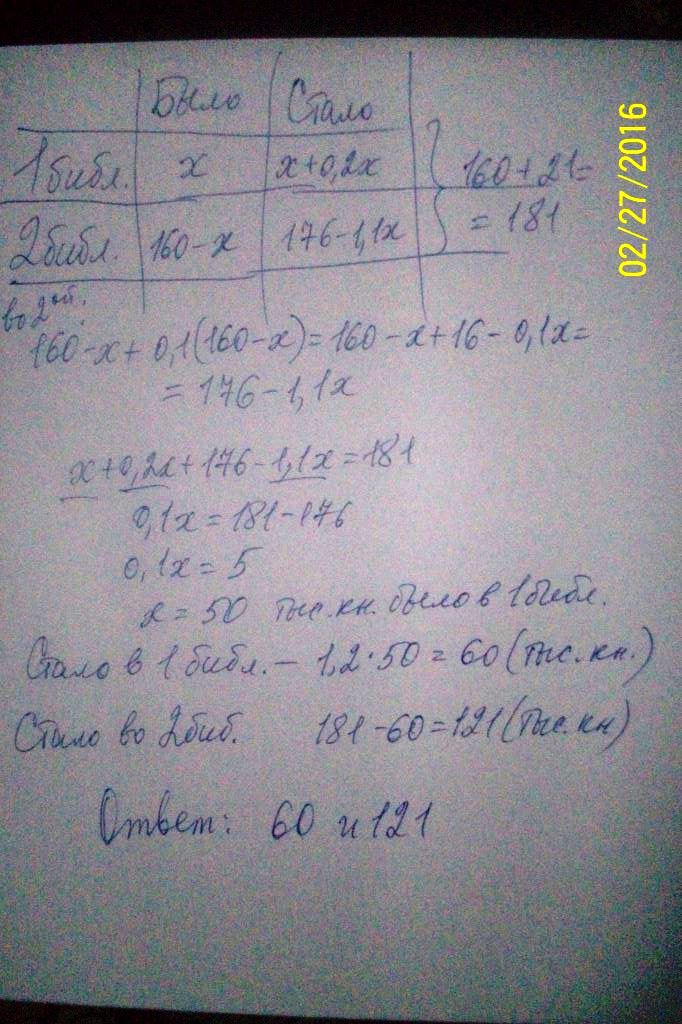 Было Стало
1 библ. x x+0,2x 160+21=
2 библ. 160-x 176-1,1x =181
во 2ой:
160-x+0,1(160-x)=160-x+16-0,1x=
=176-1,1x
x+0,2x+176-1,1x=181
0,1x=181-176
0,1x=5
x=50 тыс.кн. было в 1 библ.
Стало в 1 библ. - 1,2·50=60 (тыс.кн.)
Стало во 2 биб. 181-60=121 (тыс.кн)
Ответ: 60 и 121
02/27/2016